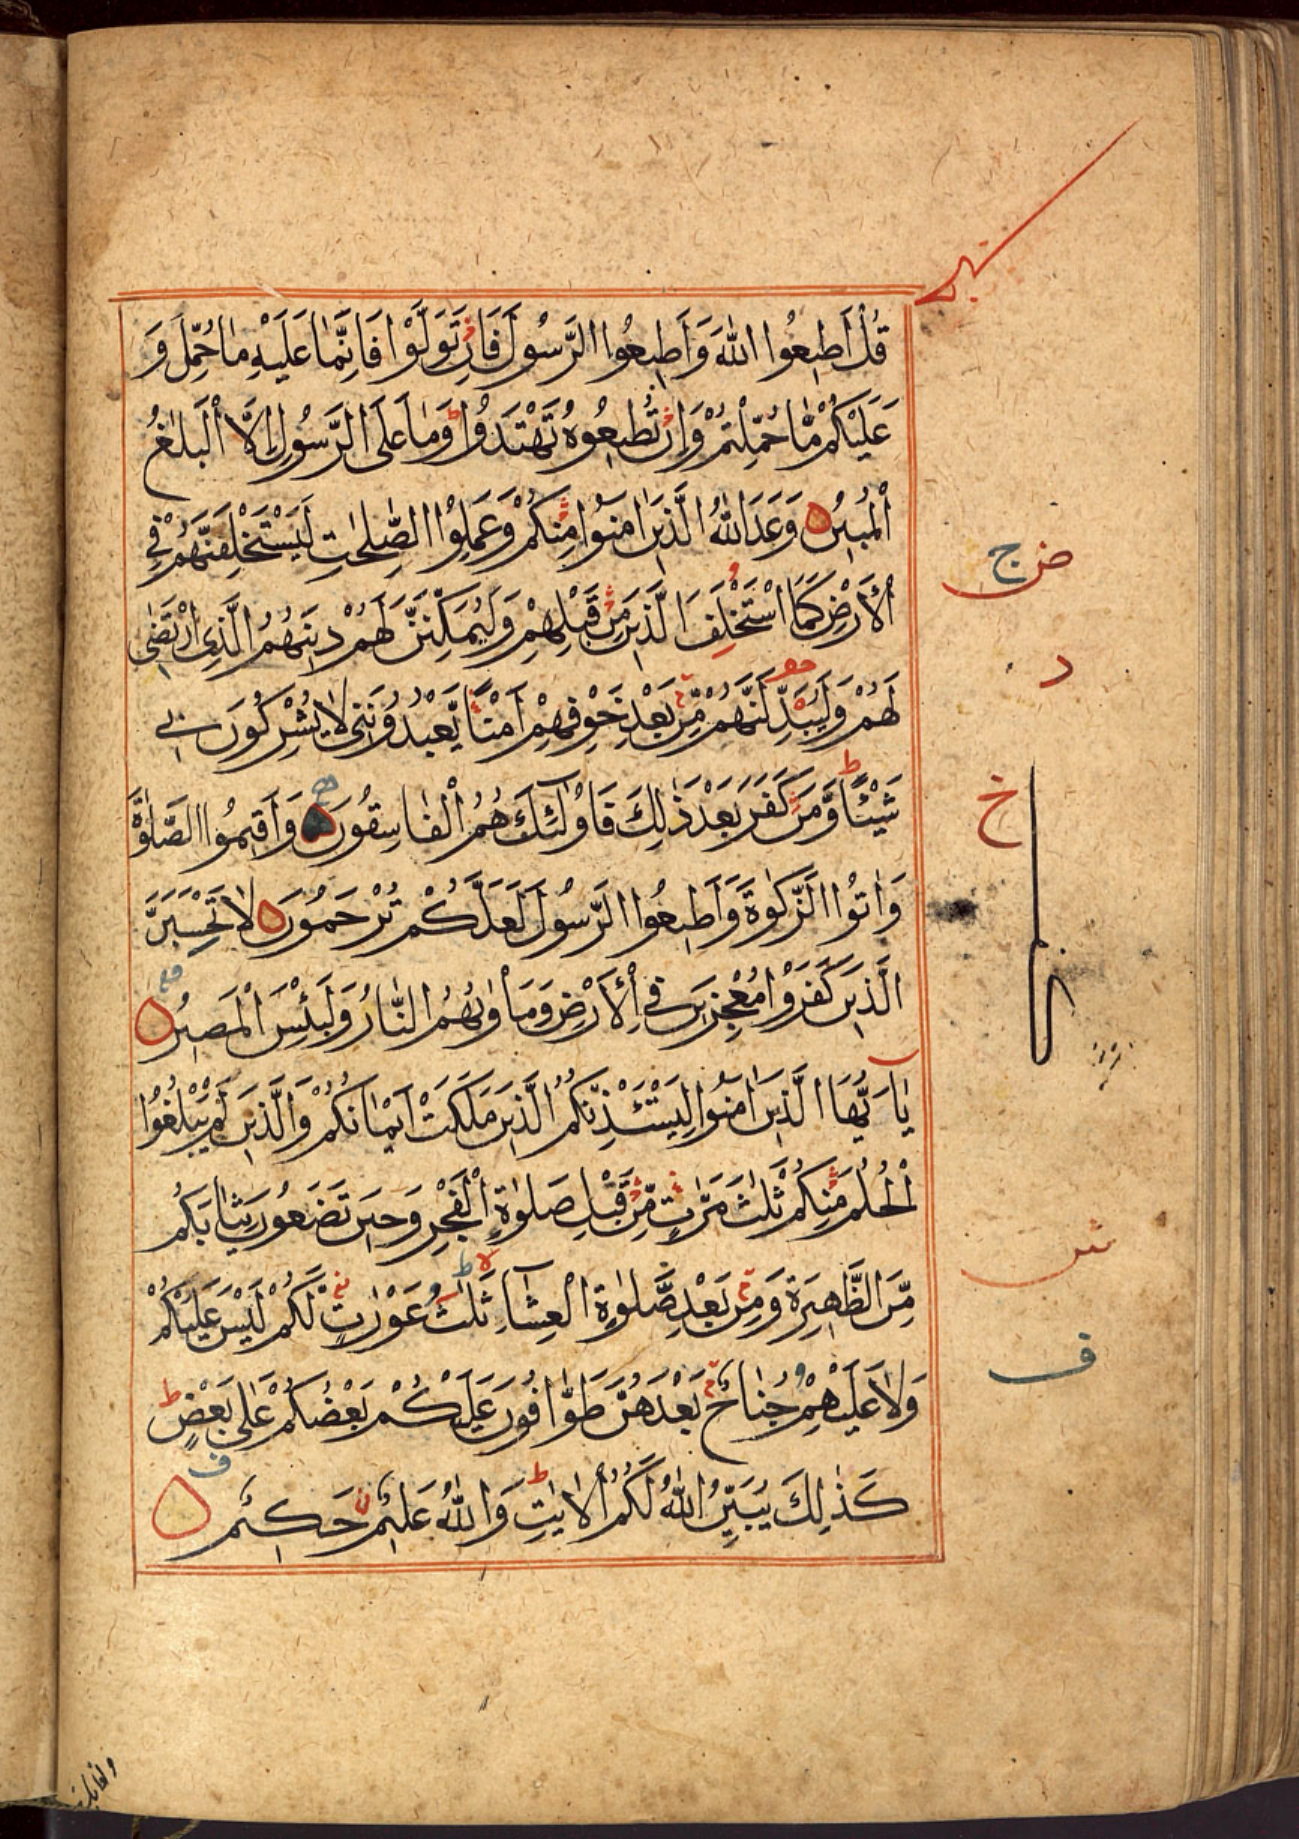 قُلْ اَطِيعُوا اللّٰهَ وَاَطِيعُوا الرَّسُولَ فَاِنْ تَوَلَّوْا فَاِنَّمٰا عَلَيْهِ مٰا حُمِّلَ وَ
عَلَيْكُمْ مٰا حُمِّلْتُمْ وَاِنْ تُطِيعُوهُ تَهْتَدُوا ط وَمٰا عَلَى الرَّسُولِ اِلَّا الْبَلٰغُ
الْمُبِينُ وَعَدَ اللّٰهُ الَّذِينَ اٰمَنُوا مِنْكُمْ وَعَمِلُوا الصّٰلِحٰتِ لَيَسْتَخْلِفَنَّهُمْ فِي
الْاَرْضِ كَمَا اسْتَخْلَفَ الَّذِينَ مِنْ قَبْلِهِمْ وَلَيُمَكِّنَنَّ لَهُمْ دِينَهُمُ الَّذِى ارْتَضٰى
لَهُمْ وَلَيُبَدِّلَنَّهُمْ مِّنْ بَعْدِ خَوْفِهِمْ اَمْنًا يَّعْبُدُونَنِى لَا يُشْرِكُونَ بِى
شَيْئًا ط وَّمَنْ كَفَرَ بَعْدَ ذٰلِكَ فَاُولٰئِكَ هُمُ الْفٰاسِقُونَ وَاَقِيمُوا الصَّلٰوةَ
وَاٰتُوا الزَّكٰوةَ وَاَطِيعُوا الرَّسُولَ لَعَلَّكُمْ تُرْحَمُونَ لَا تَحْسَبَنَّ
الَّذِينَ كَفَرُوْا مُعْجِزِينَ فِي الْاَرْضِ وَمَأْوٰىهُمُ النَّارُ وَلَبِئْسَ الْمَصِيرُ
يٰا اَيُّهَا الَّذِينَ اٰمَنُوا لِيَسْتَئْذِنْكُمُ الَّذِينَ مَلَكَتْ اَيْمٰانُكُمْ وَالَّذِينَ لَمْ يَبْلُغُوا
الْحُلُمَ مِنْكُمْ ثَلٰثَ مَرّٰتٍ مِّنْ قَبْلِ صَلٰوةِ الْفَجْرِ وَحِينَ تَضَعُونَ ثِيٰابَكُمْ
مِّنَ الظَّهِيرَةِ وَمِنْ بَعْدِ صَّلٰوةِ الْعِشٰاءِ ثَلٰثُ عَوْرٰتٍ لَّكُمْ لَيْسَ عَلَيْكُمْ
وَلَا عَلَيْهِمْ جُنٰاحٌ بَعْدَهُنَّ طَوّٰافُونَ عَلَيْكُمْ بَعْضُكُمْ عَلٰى بَعْضٍ ط
كَذٰلِكَ يُبَيِّنُ اللّٰهُ لَكُمُ الْاٰيٰتِ ط وَاللّٰهُ عَلِيْمٌ حَكِيْمٌ
ض ج
د
خ
ش
ف